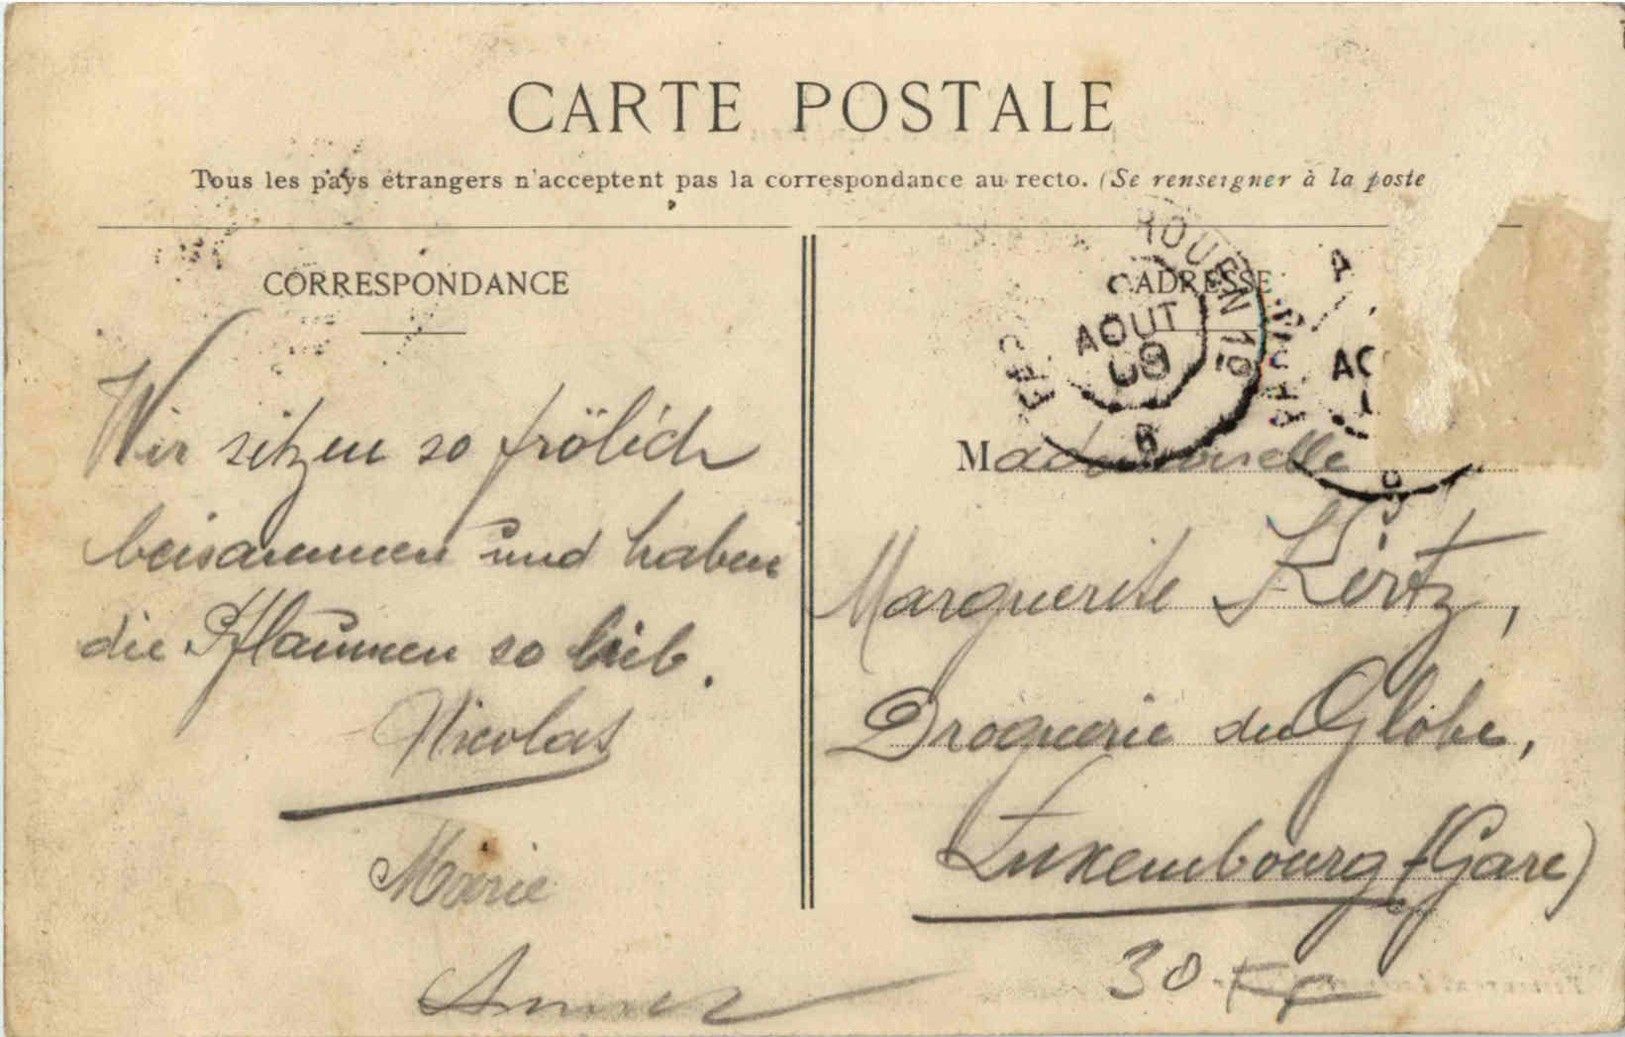 CARTE POSTALE
Tous les pays étrangers n'acceptent pas la correspondance au recto. (Se renseigner à la poste
CORRESPONDANCE
Wir sitzen so frölich
beisammen und haben
die Pflaumen so lieb.
Nicolas
Marie
ADRESSE
ROUEN
AOUT
09
Mademoiselle
Marguerite Kertz,
Droguerie du Globe,
Luxembourg (Gare)
30